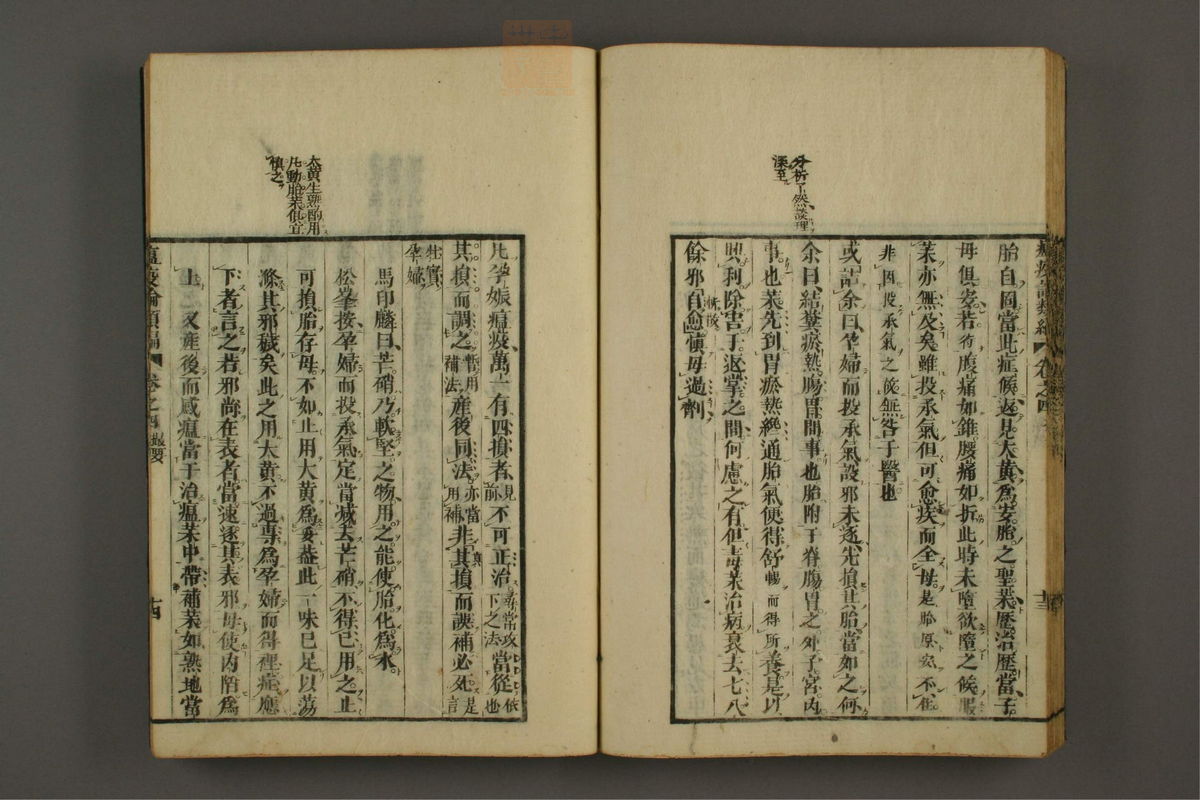 分析了然談理
深至
胎自固當此症候返見大黃爲安胎之聖藥歷治歷當子
母俱安若待腹痛如錐腰痛如折此時未墮欲墮之候服
藥亦無及矣雖投承氣但可愈疾而全母是胎原安不在
非因投承氣之後無咎于醫也
或詰余曰孕婦而投承氣設邪未逐先損其胎當如之何
余曰結糞瘀熱腸胃間事也胎附于脊腸胃之外子宮內
事也藥先到胃瘀熱纔通胎氣便得舒暢而得所養是以
興利除害于返掌之間何慮之有但毒藥治病衰去七八
餘邪自愈慎毋過劑
大黃生熟酌用
凡動胎藥俱宜
慎之
凡孕娠瘟疫萬一有四損者見前不可正治尋常攻下之法當從依也
其損而調之暫用補法產後同法亦當用補非其損而誤補必死是言
壯實
孕婦
馬印麟曰芒硝乃軟堅之物用之能使胎化爲水
松峯按孕婦而投承氣定當減去芒硝不得已用之止
可損胎存母不如止用大黃爲妥葢此一味已足以蕩
滌其邪穢矣此之用大黃不過專爲孕婦而得裡症應
下者言之若邪尚在表者當速逐其表邪毋使內陷爲
上又產後而感瘟當于治瘟藥中帶補藥如熟地當
瘟疫論類編
卷之四
撮要
十四